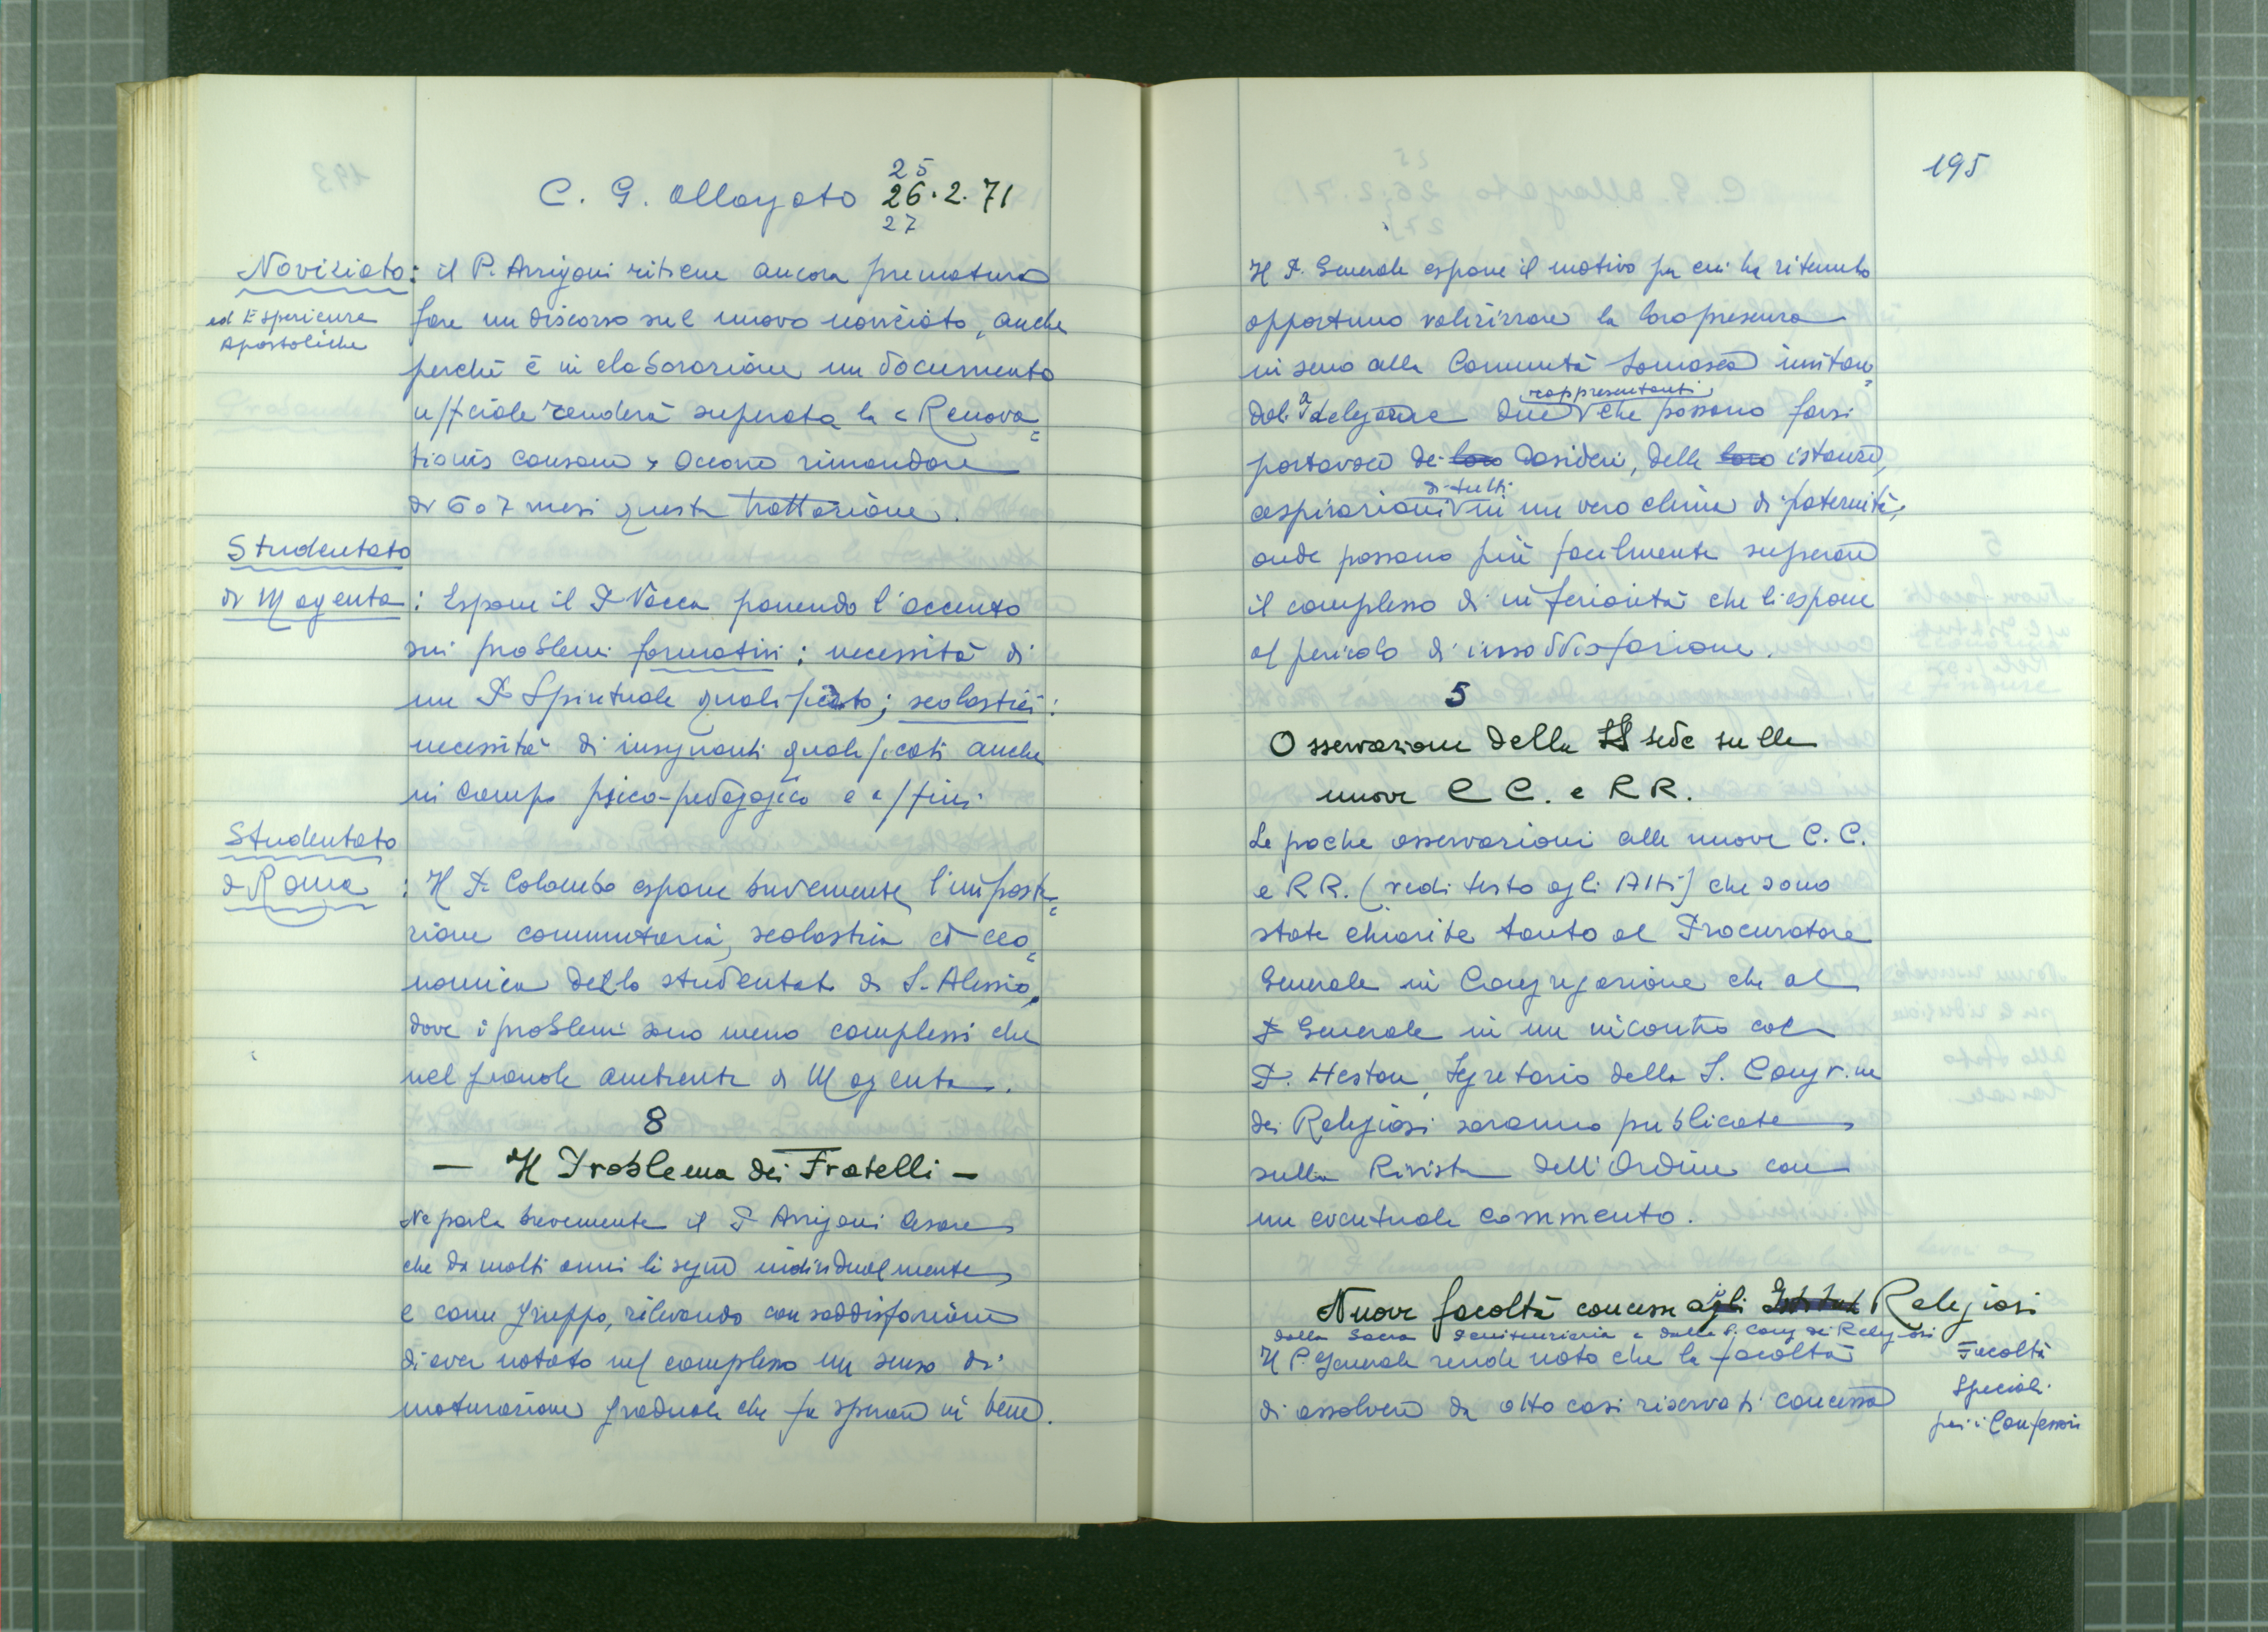 25
C. G. Allargato 26.2.71
27
Noviziato: il P. Arrigoni ritiene ancora prematuro
ed Esperienze
Apostoliche
fare un discorso sul nuovo noviziato, anche
perché è in elaborazione un documento
ufficiale renderà superata la « Renova=
tionis Causam » Occorre rimandare
di 6 o 7 mesi questa trattazione.
Studentato
di Magenta: Espone il P. Vacca ponendo l'accento
sui problemi formativi: necessità di
un P. Spirituale qualificato; scolastici:
necessità di insegnanti qualificati anche
in campo psico-pedagogico e affini.
Studentato
di Roma: Il P. Colombo espone brevemente l'imposta=
zione comunitaria, scolastica ed eco=
nomica dello studentato di S. Alessio,
dove i problemi sono meno complessi che
nel grande ambiente di Magenta.
8
- Il Problema dei Fratelli -
Ne parla brevemente il P. Arrigoni Cesare
che da molti anni li segue individualmente
e come gruppo, rilevando con soddisfazione
di aver notato nel complesso un senso di
maturazione graduale che fa sperare in bene.
195
Il P. Generale espone il motivo per cui ha ritenuto
opportuno valorizzare la loro presenza
in seno alla Comunità Somasca invitan=
doli a delegare due rappresentanti che possano farsi
portavoce dei loro desideri, delle loro istanze,
aspirazioni di tutti in un vero clima di paternità,
onde possano più facilmente superare
il complesso di inferiorità che li espone
al pericolo di insoddisfazione.
5
Osservazioni della S. Sede sulle
nuove C C. e R R.
Le poche osservazioni alle nuove C. C.
e R R. (vedi testo agli Atti) che sono
state chiarite tanto al Procuratore
Generale in Congregazione che al
P. Generale in un incontro col
P. Heston, Segretario della S. Congr.ne
dei Religiosi saranno pubblicate
sulla Rivista dell'Ordine con
un eventuale commento.
Nuove facoltà concesse agli Istituti Religiosi
dalla Sacra Penitenzieria e dalla S. Cong dei Religiosi
Il P. Generale rende noto che la facoltà
di assolvere da otto casi riservati concessa
Facoltà
Speciali
per i Confessori